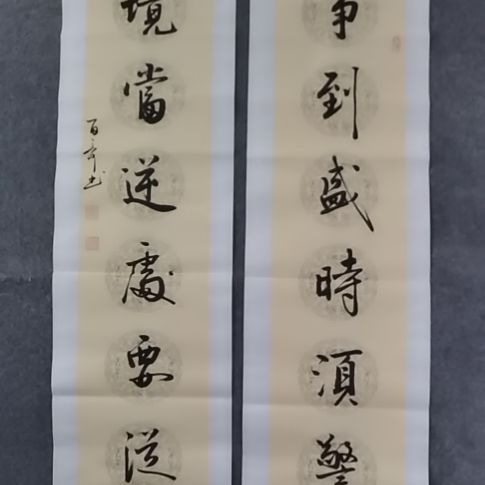 事到盛時須警
境當逆處要從
百年書